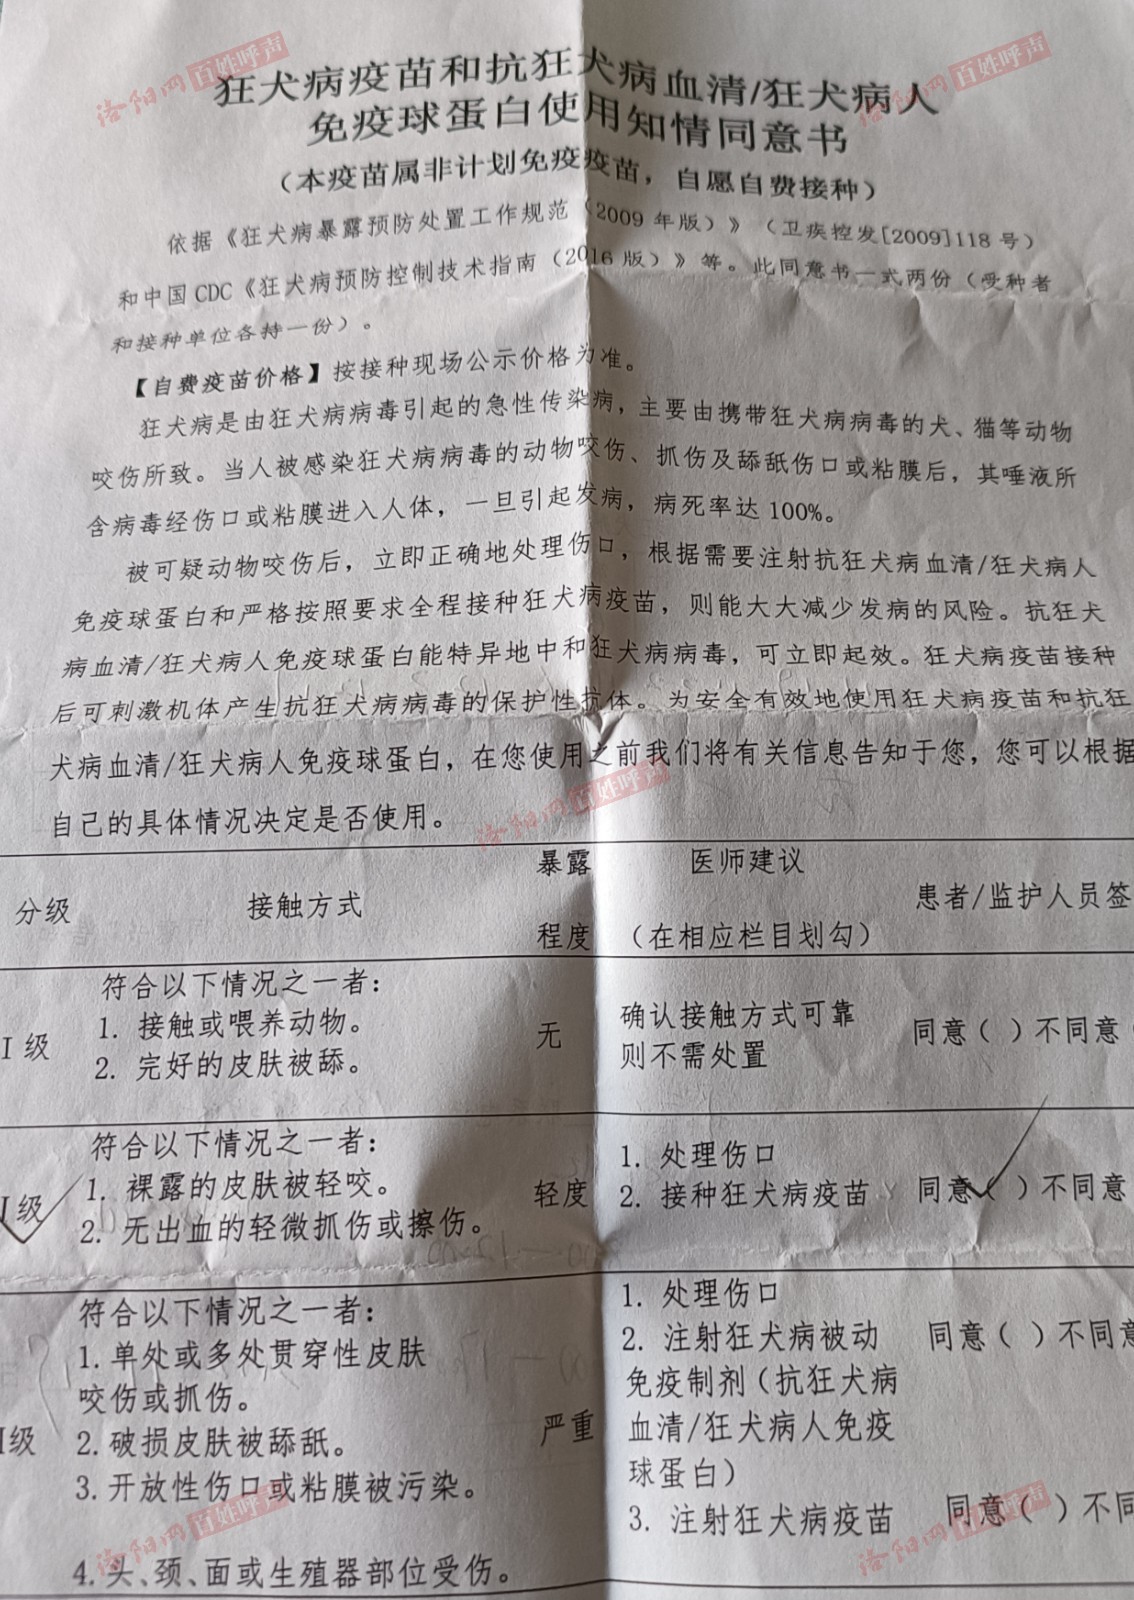 狂犬病疫苗和抗狂犬病血清/狂犬病人
免疫球蛋白使用知情同意书
（本疫苗属非计划免疫疫苗，自愿自费接种）
依据《狂犬病暴露预防处置工作规范（2009 年版）》（卫疾控发[2009]118 号）
和中国 CDC《狂犬病预防控制技术指南（2016 版）》等。此同意书一式两份（受种者
和接种单位各持一份）。
【自费疫苗价格】按接种现场公示价格为准。
狂犬病是由狂犬病病毒引起的急性传染病，主要由携带狂犬病病毒的犬、猫等动物
咬伤所致。当人被感染狂犬病病毒的动物咬伤、抓伤及舔舐伤口或粘膜后，其唾液所
含病毒经伤口或粘膜进入人体，一旦引起发病，病死率达 100%。
被可疑动物咬伤后，立即正确地处理伤口，根据需要注射抗狂犬病血清/狂犬病人
免疫球蛋白和严格按照要求全程接种狂犬病疫苗，则能大大减少发病的风险。抗狂犬
病血清/狂犬病人免疫球蛋白能特异地中和狂犬病病毒，可立即起效。狂犬病疫苗接种
后可刺激机体产生抗狂犬病病毒的保护性抗体。为安全有效地使用狂犬病疫苗和抗狂
犬病血清/狂犬病人免疫球蛋白，在您使用之前我们将有关信息告知于您，您可以根据
自己的具体情况决定是否使用。
分级 接触方式 暴露程度 医师建议（在相应栏目划勾） 患者/监护人员签
I 级
符合以下情况之一者：
1. 接触或喂养动物。
2. 完好的皮肤被舔。
无
确认接触方式可靠
则不需处置
同意（ ）不同意（
I级
符合以下情况之一者：
1. 裸露的皮肤被轻咬。
2. 无出血的轻微抓伤或擦伤。
轻度
1. 处理伤口
2. 接种狂犬病疫苗
同意（✓）不同意
I级
符合以下情况之一者：
1.单处或多处贯穿性皮肤
咬伤或抓伤。
2.破损皮肤被舔舐。
3.开放性伤口或粘膜被污染。
4.头、颈、面或生殖器部位受伤。
严重
1. 处理伤口
2. 注射狂犬病被动
免疫制剂（抗狂犬病
血清/狂犬病人免疫
球蛋白）
3. 注射狂犬病疫苗
同意（ ）不同意
同意（ ）不同
洛阳网 百姓呼声
洛阳网 百姓呼声
洛阳网 百姓呼声
洛阳网 百姓呼声
洛阳网 百姓呼声